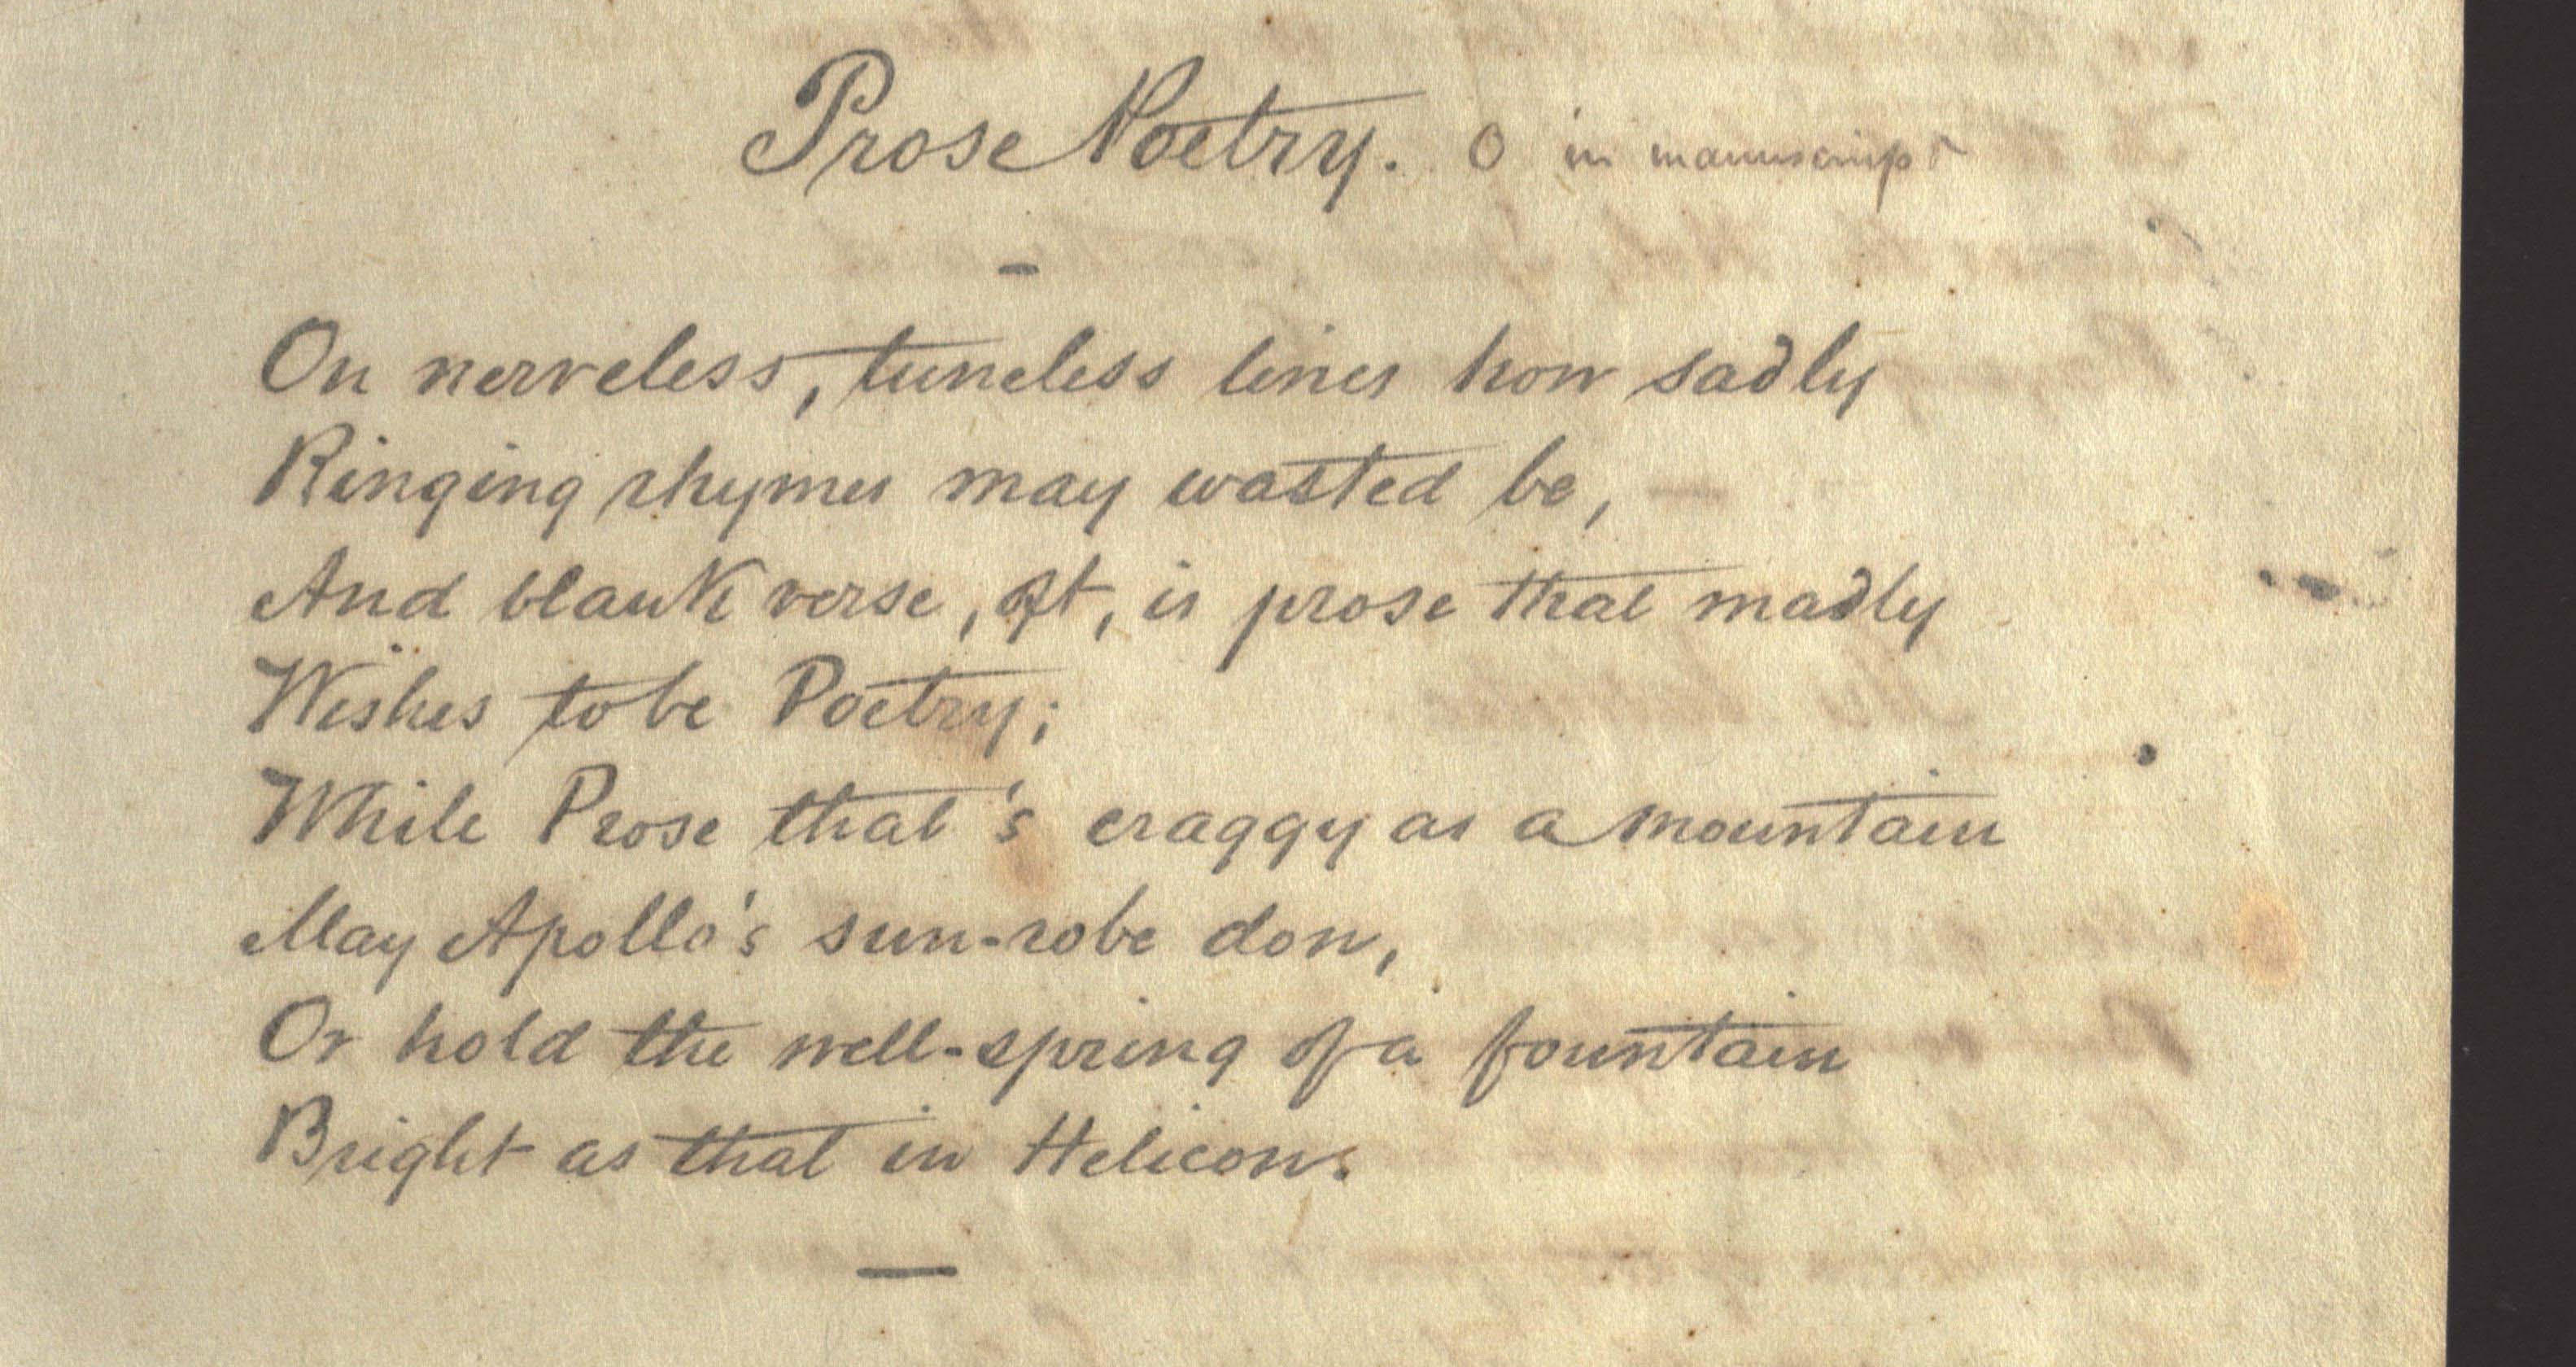 Prose Poetry. O in manuscript
On nerveless, tuneless lines how sadly
Ringing rhymes may wasted be,
And blank verse, oft, is prose that madly
Wishes to be Poetry;
While Prose that's craggy as a mountain
May Apollo's sun-robe don,
Or hold the well-spring of a fountain
Bright as that in Helicon.